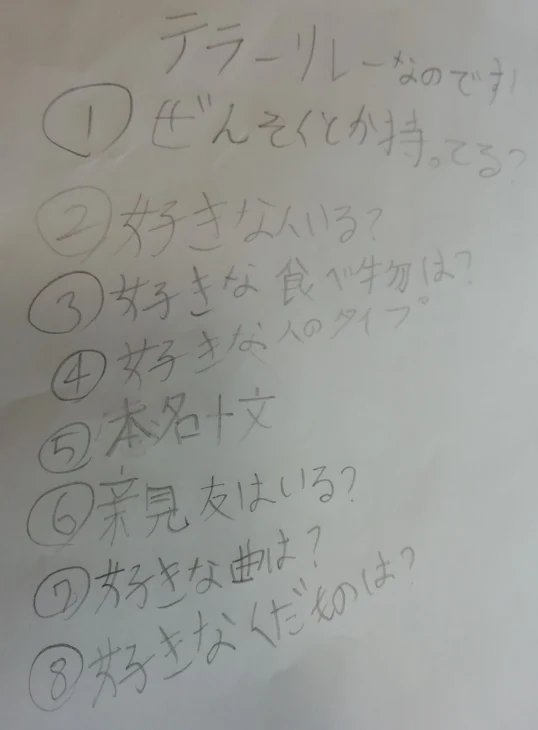 テラーリレーなのです!
① ぜんそくとか持ってる?
② 好きな人いる?
③ 好きな食べ物は?
④ 好きな人のタイプ
⑤ 本名十文
⑥ 親友はいる?
⑦ 好きな曲は?
⑧ 好きなくだものは?